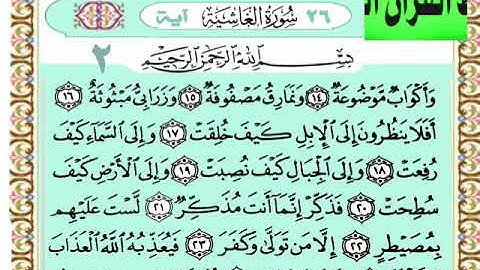 ٢٦ سُورَةُ الْغَاشِيَةِ آية
٢ بِسْمِ اللَّهِ الرَّحْمَٰنِ الرَّحِيمِ
وَأَكْوَابٌ مَّوْضُوعَةٌ ١٤ وَنَمَارِقُ مَصْفُوفَةٌ ١٥ وَزَرَابِيُّ مَبْثُوثَةٌ ١٦
أَفَلَا يَنظُرُونَ إِلَى الْإِبِلِ كَيْفَ خُلِقَتْ ١٧ وَإِلَى السَّمَاءِ كَيْفَ
رُفِعَتْ ١٨ وَإِلَى الْجِبَالِ كَيْفَ نُصِبَتْ ١٩ وَإِلَى الْأَرْضِ كَيْفَ
سُطِحَتْ ٢٠ فَذَكِّرْ إِنَّمَا أَنتَ مُذَكِّرٌ ٢١ لَّسْتَ عَلَيْهِم
بِمُصَيْطِرٍ ٢٢ إِلَّا مَن تَوَلَّىٰ وَكَفَرَ ٢٣ فَيُعَذِّبُهُ اللَّهُ الْعَذَابَ